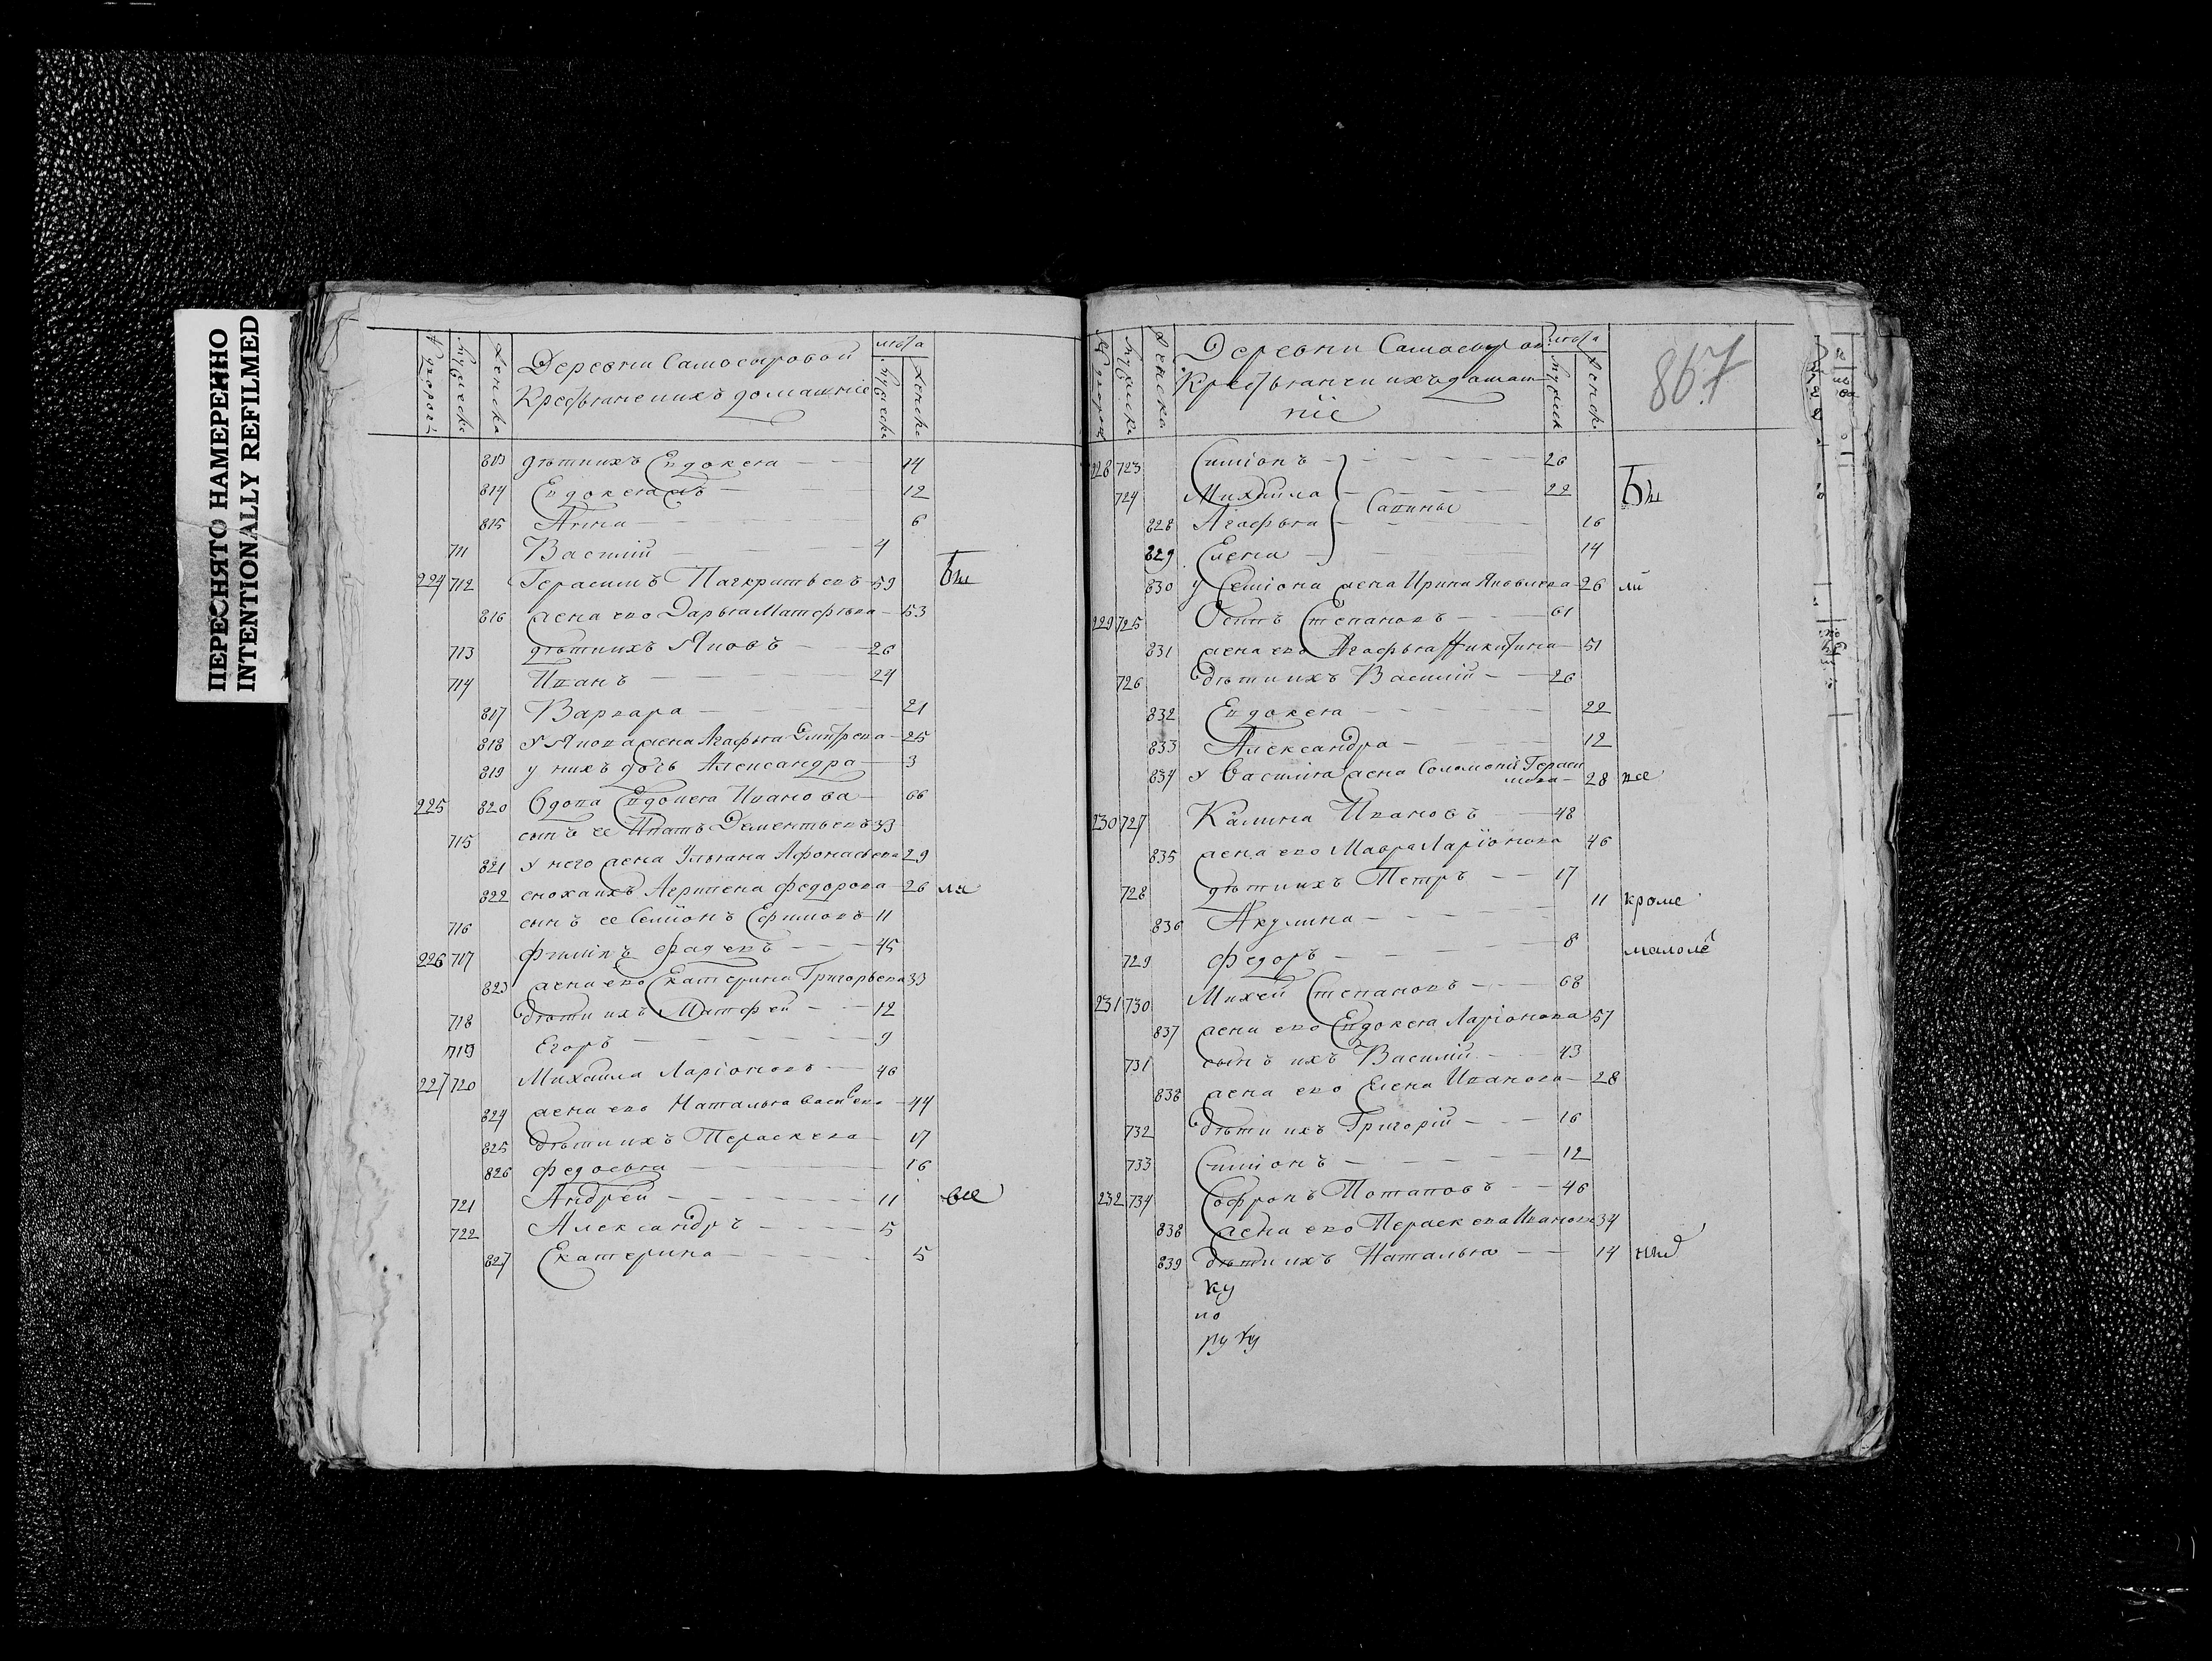 ПЕРЕСНЯТО НАМЕРЕННО
INTENTIONALLY REFILMED
Деревни Самосыровой лѣта
Крестьяне и ихъ домашніе
813 дѣти ихъ Евдокея 14
814 Евдокея жъ 12
815 Анна 6
711 Василій 4
224 712 Герасимъ Панкратьевъ 59 Бы
816 жена ево Дарья Матфѣева 53
713 дѣти ихъ Яковъ 26
714 Иванъ 24
817 Варвара 21
818 У Якова жена Агафья Дмитрева 25
819 у нихъ дочь Александра 3
225 820 Вдова Евдокея Иванова 66
715 сынъ ее Игнатъ Дементьевъ 33
821 У него жена Ульяна Афонасьева 29
822 сноха ихъ Агрипена Федорова 26 ли
716 сынъ ее Семіонъ Ефимовъ 11
226 717 Филипъ Фадевъ 45
823 жена ево Екатерина Григорьева 33
718 дѣти ихъ Матфей 12
719 Егоръ 9
227 720 Михаила Ларіоновъ 46
824 жена ево Наталья Васильева 44
825 дѣти ихъ Пераскева 17
826 Федосья 16
721 Андрей 11 все
722 Александръ 5
827 Екатерина 5
Деревни Самосыровой лѣта 867
Крестьяне и ихъ домаш
ніе
228 723 Симіонъ 26
724 Михаила 22 Бы
Савины
828 Агафья 16
829 Елена 14
830 у Семіона жена Ирина Яковлева 26 ли
229 725 Осипъ Степановъ 61
831 жена ево Агафья Никитина 51
726 дѣти ихъ Василій 26
832 Евдокея 22
833 Александра 12
834 У Василія жена Соломонія Гераси
мова 28 все
230 727 Калина Ивановъ 48
835 жена ево Мавра Ларіонова 46
728 дѣти ихъ Петръ 17
836 Акулина 11 кроме
729 Федоръ 8 малолѣ
231 730 Михей Степановъ 68
837 жена ево Евдокея Ларіонова 57
731 сынъ ихъ Василій 43
838 жена ево Елена Иванова 28
732 дѣти ихъ Григорій 16
733 Симіонъ 12
232 734 Софронъ Потаповъ 46
838 жена ево Пераскева Иванова 34
839 дѣти ихъ Наталья 14
ку
по
ру ку